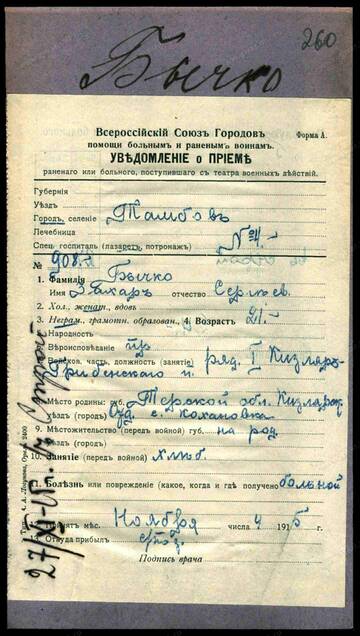 260
Бычко
Всероссійскій Союзъ Городовъ
Форма А.
помощи больнымъ и раненымъ воинамъ.
УВѢДОМЛЕНІЕ о ПРІЕМѢ
раненаго или больного, поступившаго съ театра военныхъ дѣйствій.
Губернія
Уѣздъ
Городъ, селеніе Тамбовъ
Лечебница
Спец. госпиталь (лазаретъ, патронажъ) №4-
№ 908.
1. Фамилія Бычко
Имя Захаръ отчество Сергѣев.
2. Хол., женат., вдовъ
3. Неграм., грамотн. образован., 4. Возрастъ 21.-
5. Народность
6. Вѣроисповѣданіе пр
7. Войсков. часть, должность (занятіе) ряд. I Кизляро-
Гребенского п.
8. Мѣсто родины: губ. Терской обл. Кизлярск
уѣздъ (городъ) отд. с. Кохановка
9. Мѣстожительство (передъ войной) губ. на род.
уѣздъ (городъ)
10. Занятіе (передъ войной) хлѣб
11. Болѣзнь или поврежденіе (какое, когда и гдѣ получено) больной
12. Принятъ мѣс. Ноября числа 4 1915 г.
13. Откуда прибылъ
Подпись врача